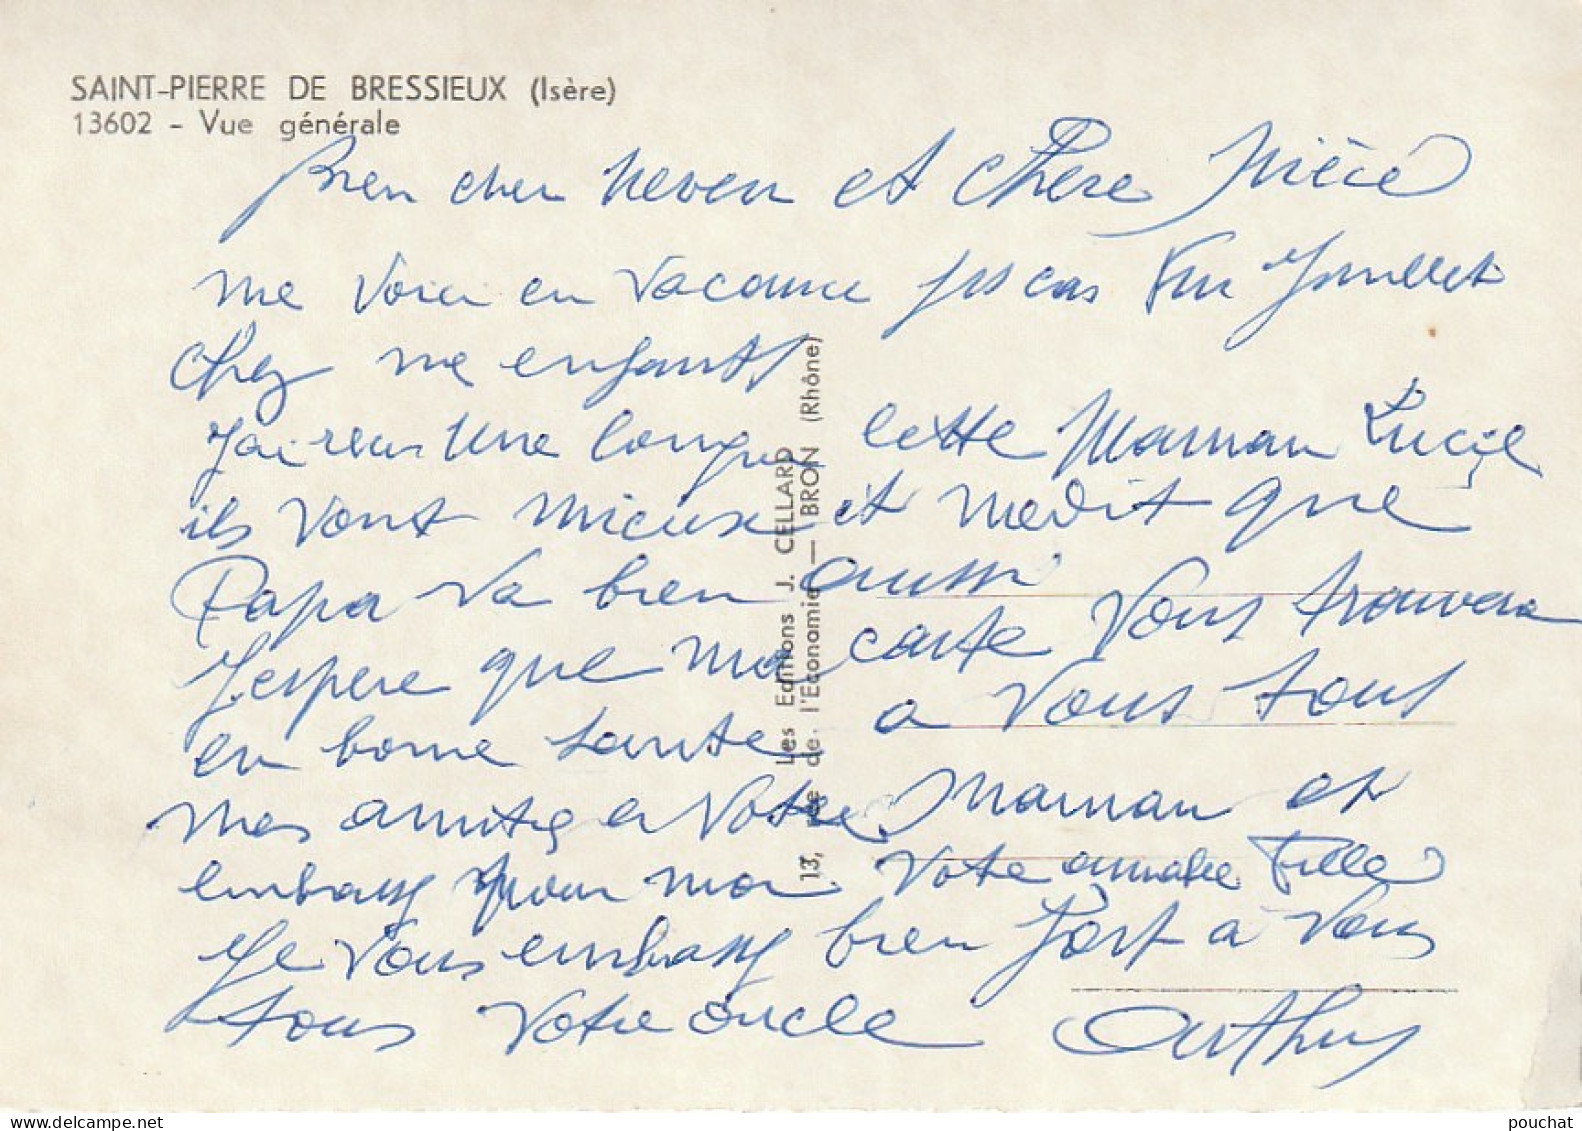 SAINT-PIERRE DE BRESSIEUX (Isère)
13602 - Vue générale
Bien cher neveu et chere Nièce
me voici en vacance juscas Fin Jouillet
chez me enfants
J'ai reus une longue lette Maman Lucie
ils vont mieux et me dit que
Papa va bien aussi
J'espere que ma carte vous trouvera
en bonne sante a vous tous
mes amities a votre Maman et
embrassez pour moi vote aimable Fille
Je vous embrasse bien fort a vous
tous votre oncle Arthur
Les Editions J. CELLARD
13, rue de l'Economie — BRON (Rhône)
pouchat